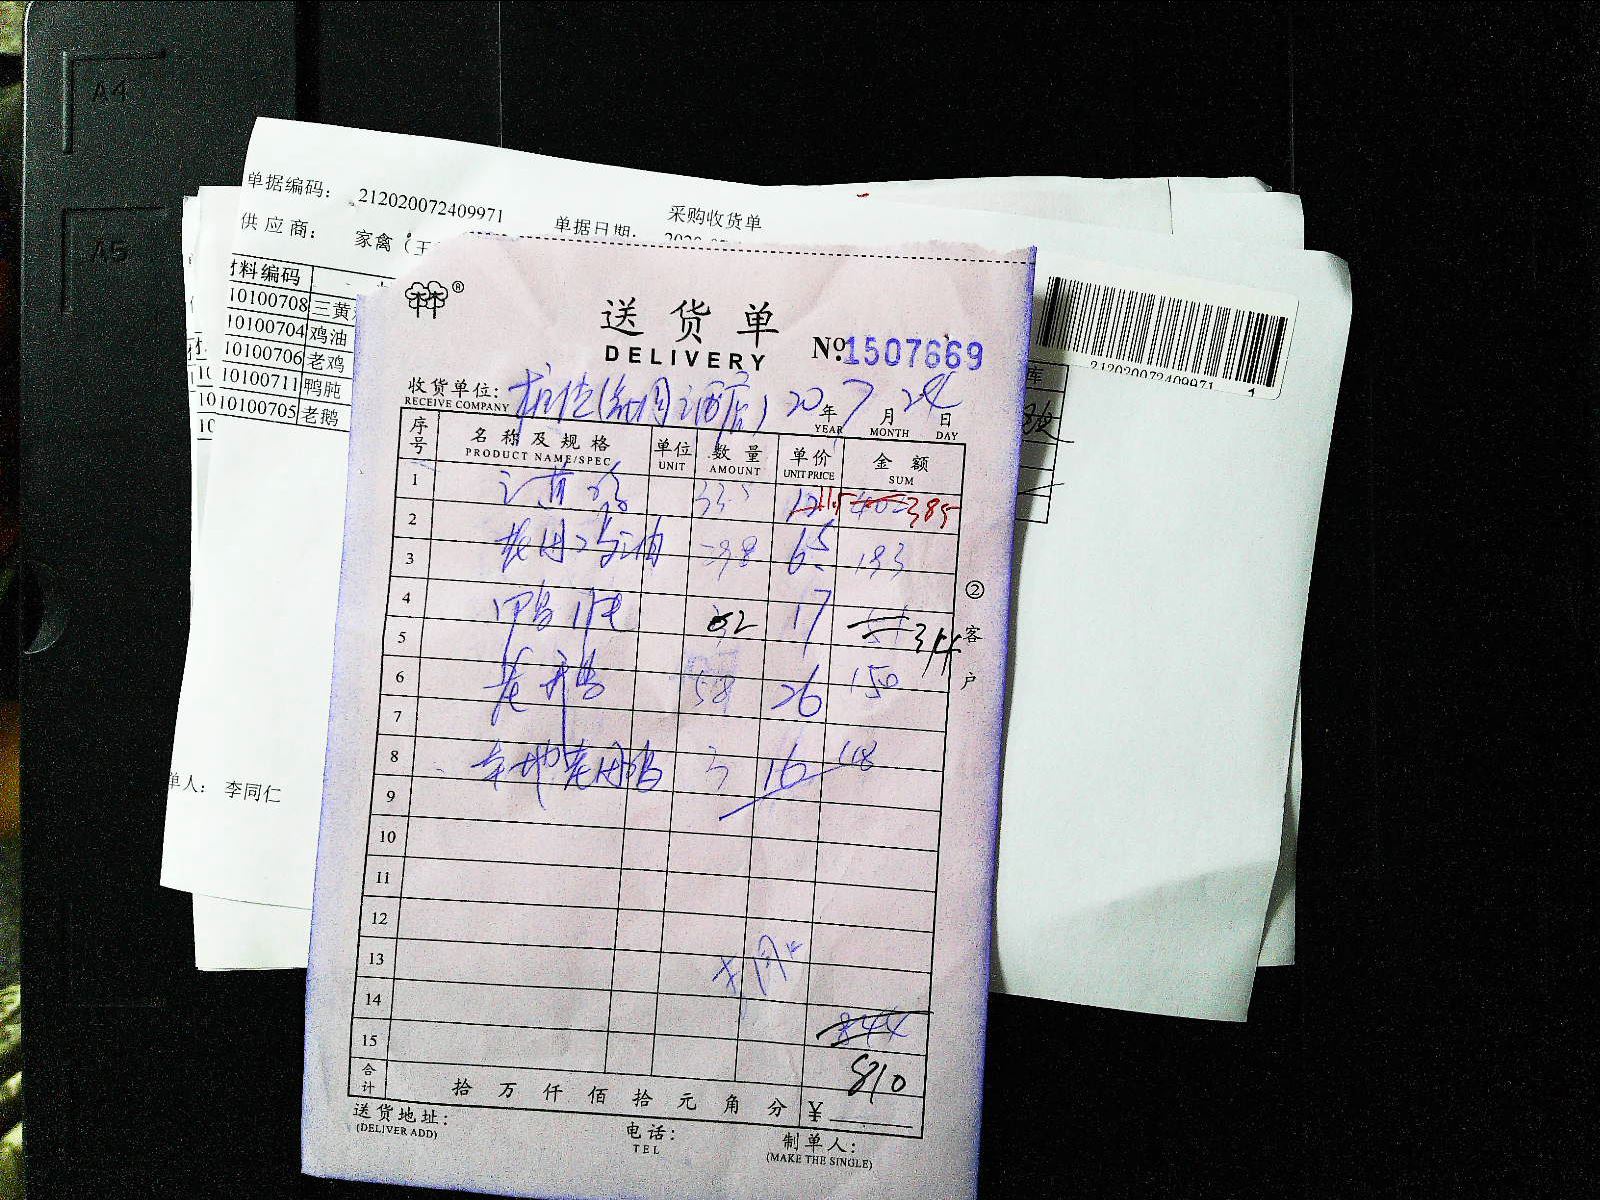 A4
A5
单据编码： 212020072409971
采购收货单
供应商： 家禽（王
单据日期：
材料编码
10100708 三黄
10100704 鸡油
10100706 老鸡
10100711 鸭肫
10100705 老鹅
单人： 李同仁
212020072409971
1
库
®
送货单
DELIVERY
№ 1507669
收货单位： 20 年 7 月 24 日
RECEIVE COMPANY YEAR MONTH DAY
序号 名称及规格 单位 数量 单价 金额
PRODUCT NAME/SPEC UNIT AMOUNT UNIT PRICE SUM
1 三黄鸡 33.5 12 11.5 402 385
2
3 6.5 183
4 鸭肫 17
5
6 老鹅 58 26 150
7
8 本地老母鸡 3 16 48
9
10
11
12
13
14
15 844
810
合计 拾 万 仟 佰 拾 元 角 分 ¥
②客户
送货地址： 电话： 制单人：
(DELIVER ADD) TEL (MAKE THE SINGLE)